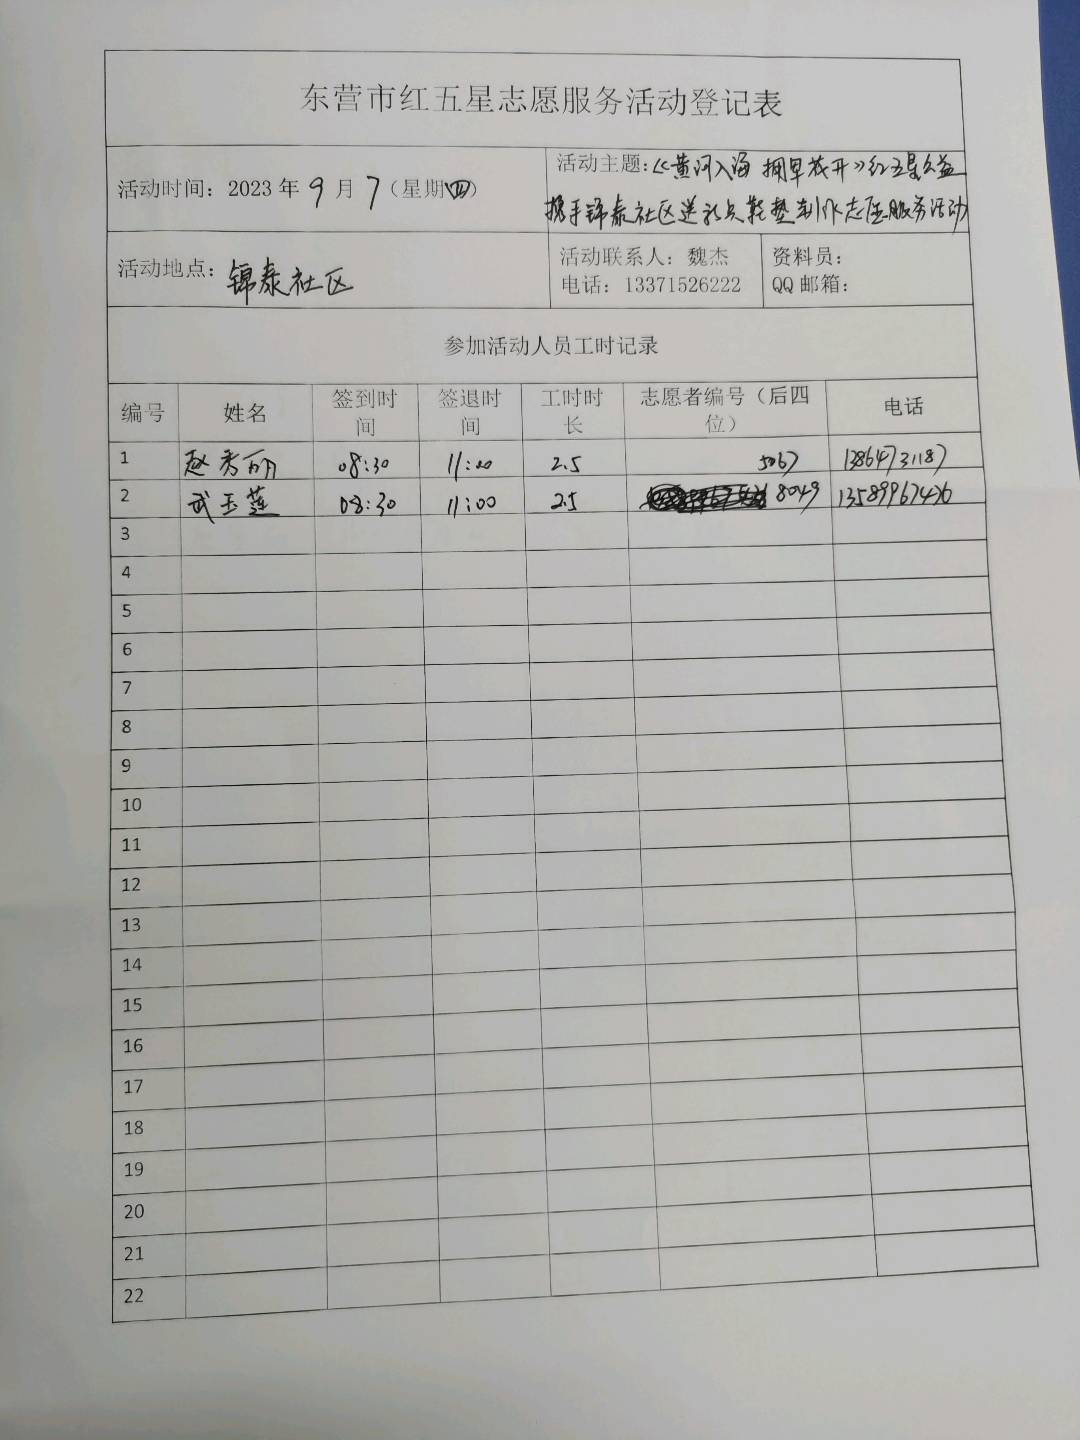 东营市红五星志愿服务活动登记表
活动时间：2023年9月7（星期四）
活动主题：《黄河入海 拥早花开》红五星公益
携手锦泰社区送彩点鞋垫制作志愿服务活动
活动地点：锦泰社区
活动联系人：魏杰
电话：13371526222
资料员：
QQ邮箱：
参加活动人员工时记录
编号 姓名 签到时间 签退时间 工时时长 志愿者编号（后四位） 电话
1 赵秀丽 08:30 11:00 2.5 5067 13864731187
2 武玉莲 08:30 11:00 2.5 8049 13589967426
3
4
5
6
7
8
9
10
11
12
13
14
15
16
17
18
19
20
21
22